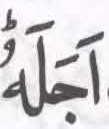 اَجَلَهٗ ؕ